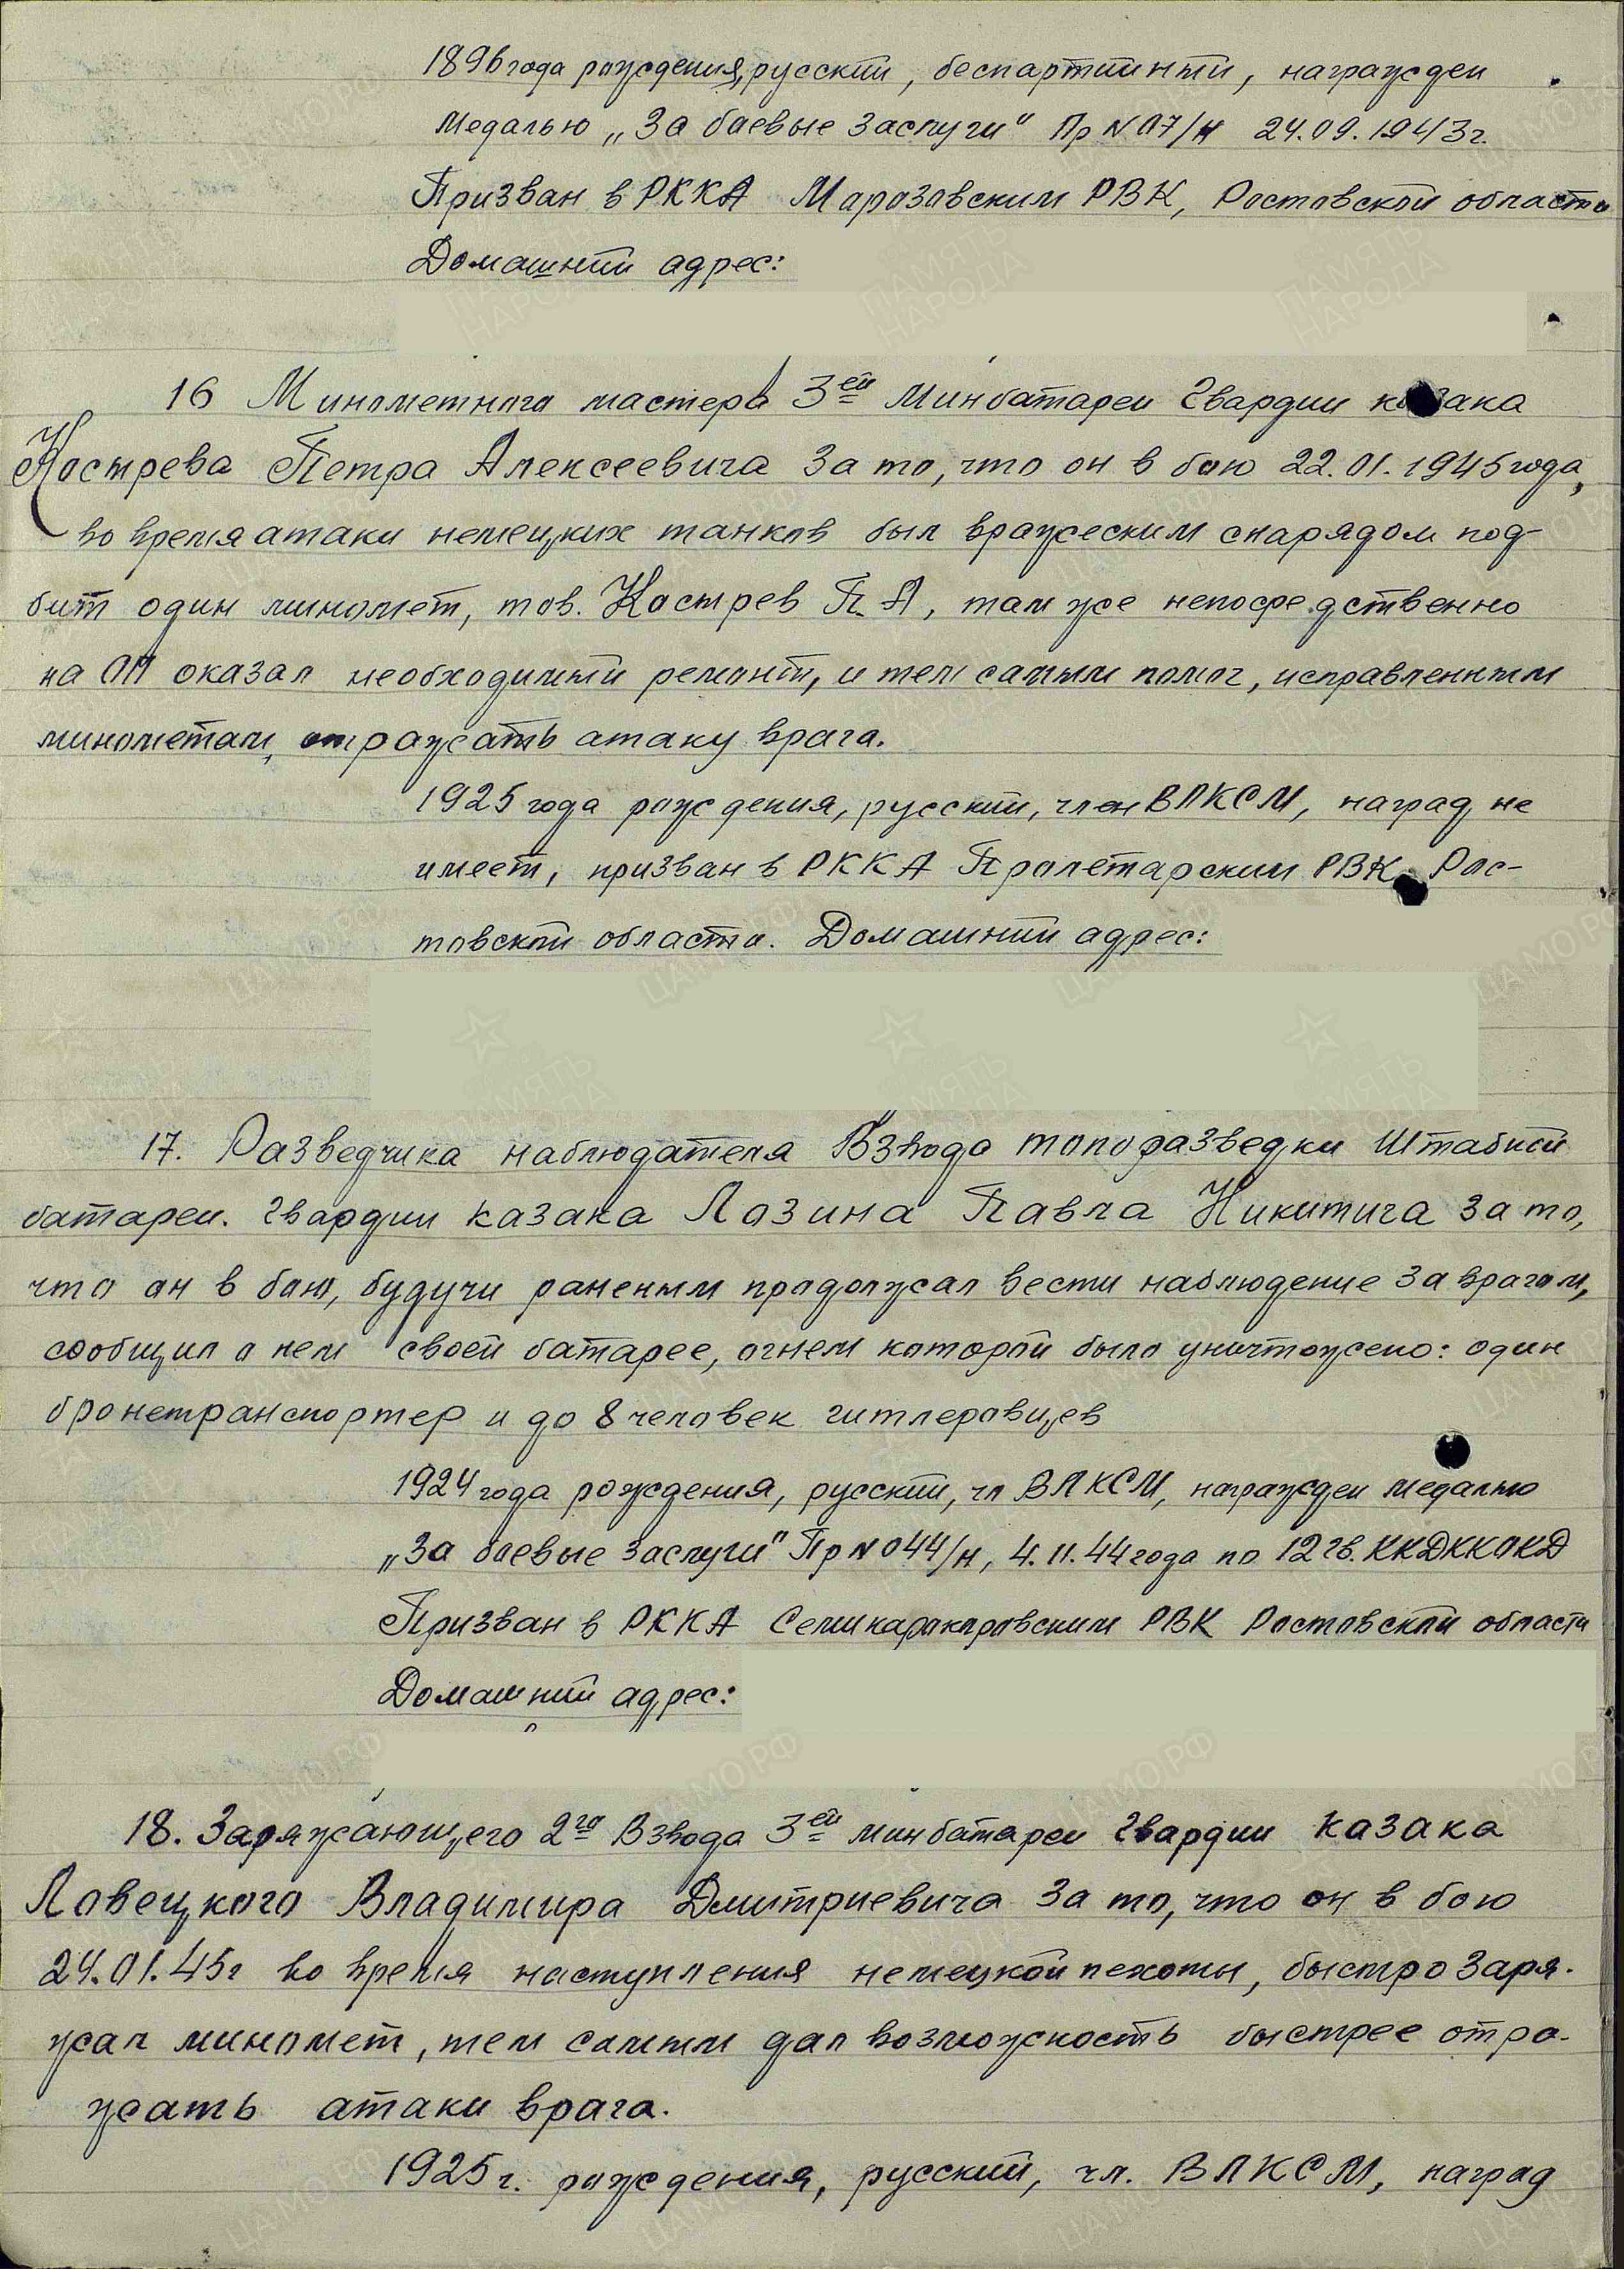 1896 года рождения, русский, беспартийный, награжден
медалью „За боевые заслуги" Пр N 07/н 24.09.1943г.
Призван в РККА Марозовским РВК, Ростовской области
Домашний адрес:
16 Минометного мастера 3ей минбатареи гвардии казака
Кострева Петра Алексеевича за то, что он в бою 22.01.1945 года,
во время атаки немецких танков был вражеским снарядом под-
бит один миномет, тов. Кострев П.А, там же непосредственно
на ОП оказал необходимый ремонт, и тем самым помог, исправленным
минометам, отражать атаку врага.
1925 года рождения, русский, член ВЛКСМ, наград не
имеет, призван в РККА Пролетарским РВК Рос-
товской области. Домашний адрес:
17. Разведчика наблюдателя Взвода топоразведки Штабной
батареи. гвардии казака Лозина Павла Никитича за то,
что он в бою, будучи раненым продолжал вести наблюдение за врагом,
сообщил о нем своей батарее, огнем которой было уничтожено: один
бронетранспортер и до 8 человек гитлеровцев
1924 года рождения, русский, чл ВЛКСМ, награжден медалью
„За боевые заслуги" Пр N 044/н, 4.11.44 года по 12 гв. ККДККОКД
Призван в РККА Семикаракоровским РВК Ростовской области
Домашний адрес:
18. Заряжающего 2го Взвода 3ей минбатареи гвардии казака
Ловецкого Владимира Дмитриевича за то, что он в бою
24.01.45г во время наступления немецкой пехоты, быстро заря-
жал миномет, тем самым дал возможность быстрее отра-
жать атаки врага.
1925 г. рождения, русский, чл. ВЛКСМ, наград